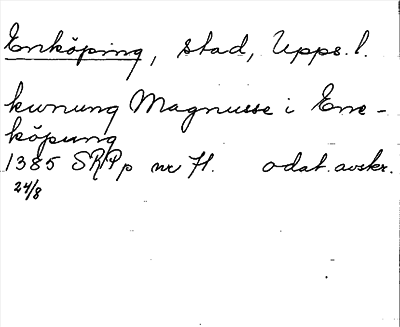 Enköping, stad, Upps. l.
kunung Magnusse i Ene-
köpung
1385 SRPp nr 71. odat. avskr.
24/8